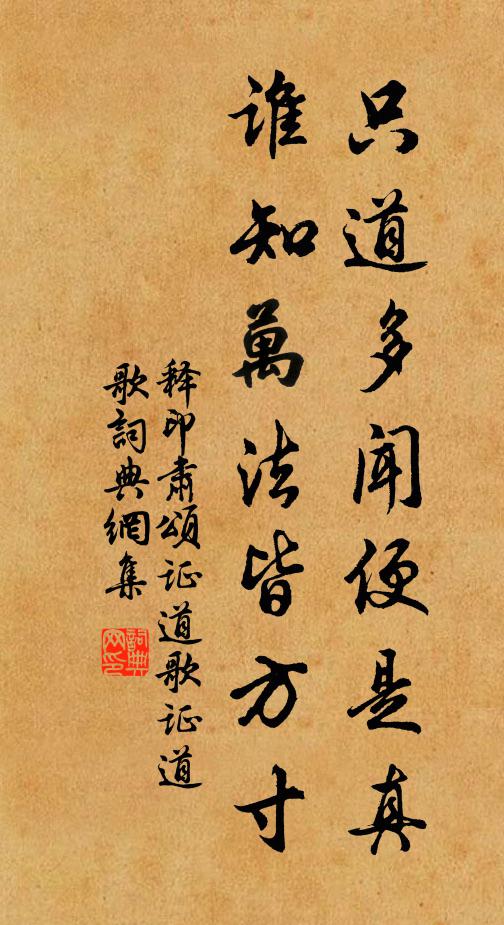 只道多闻便是真
谁知萬法皆方寸
释印肃頌证道歌证道
歌詞典網集
詞典网印